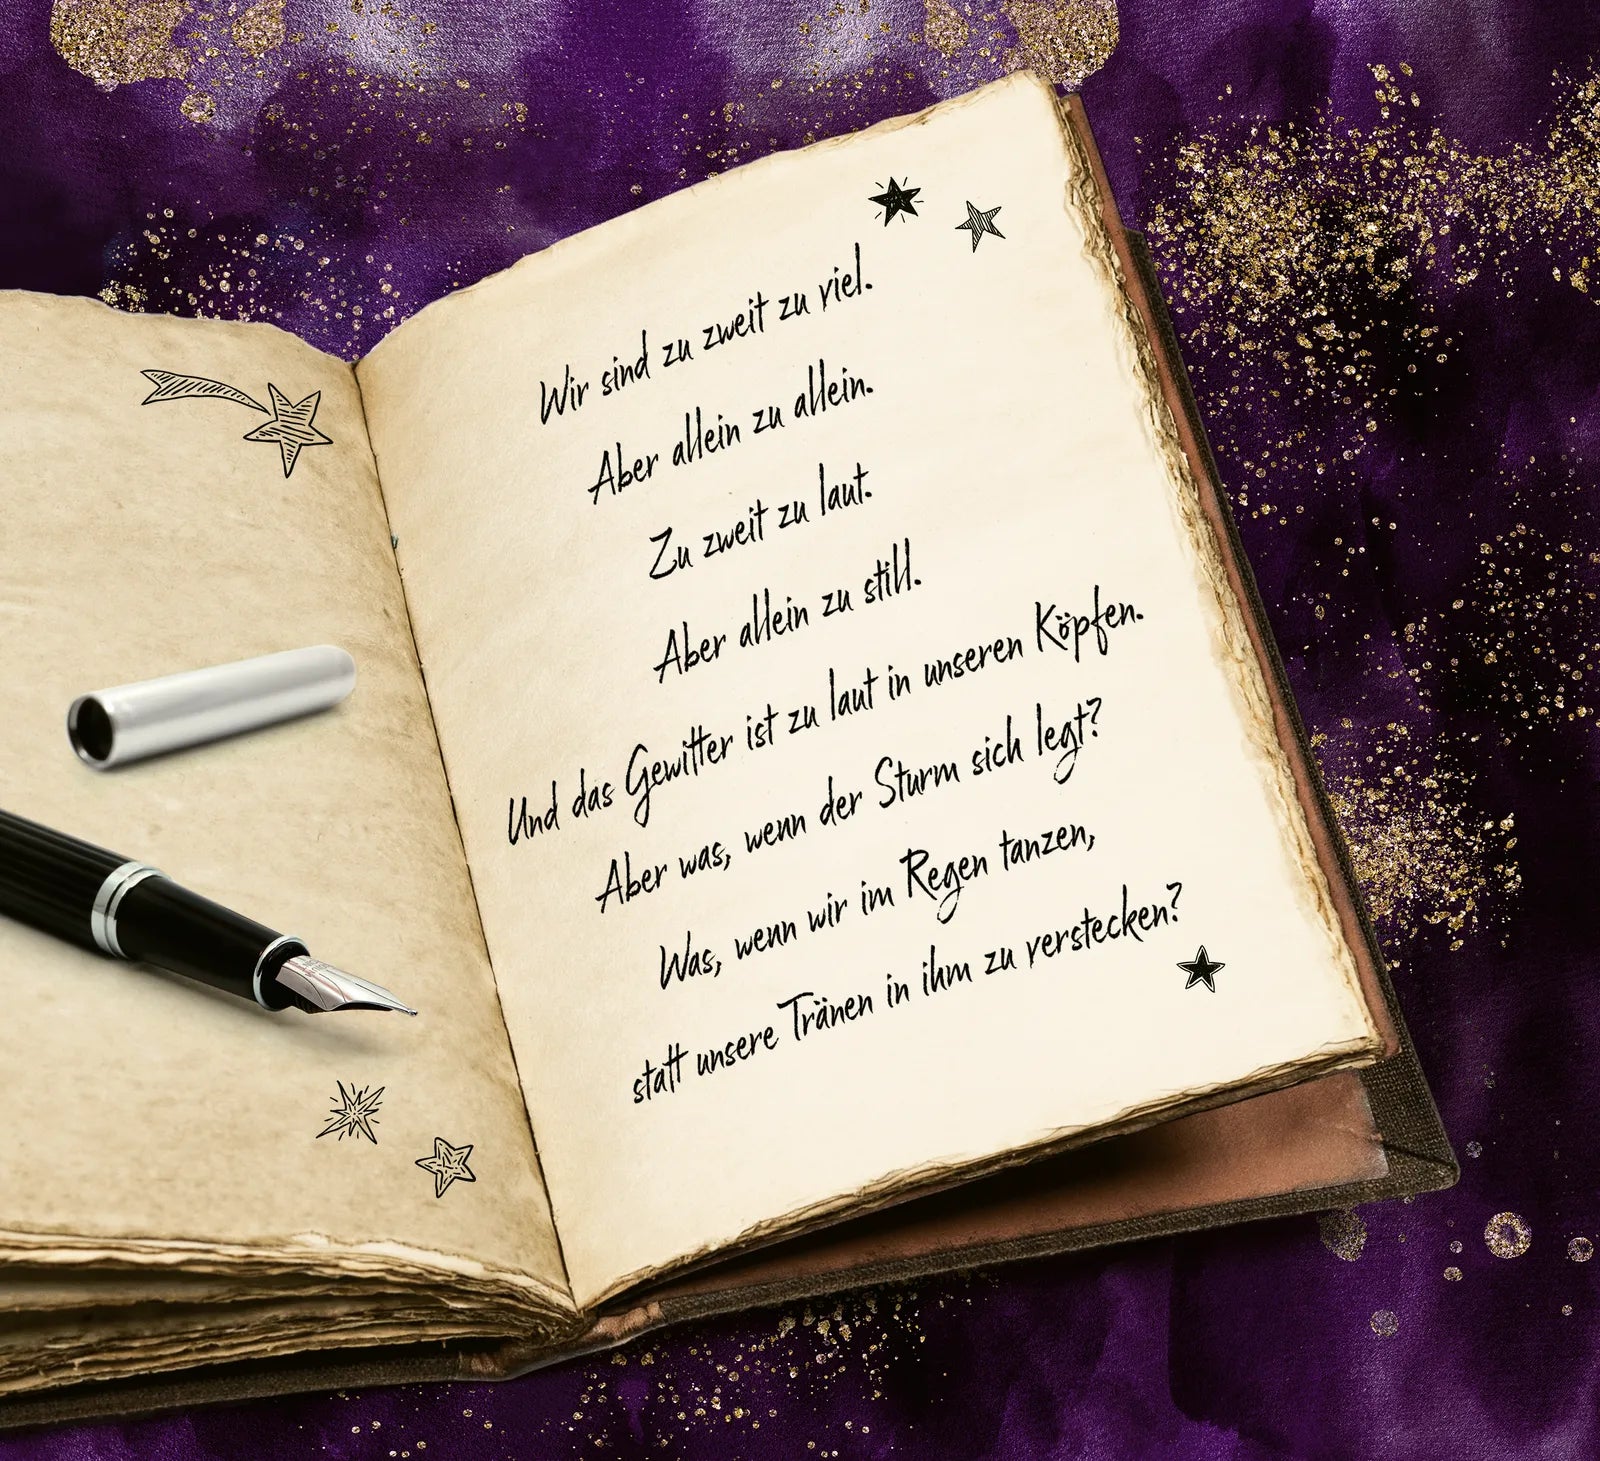 Wir sind zu zweit zu viel.
Aber allein zu allein.
Zu zweit zu laut.
Aber allein zu still.
Und das Gewitter ist zu laut in unseren Köpfen.
Aber was, wenn der Sturm sich legt?
Was, wenn wir im Regen tanzen,
statt unsere Tränen in ihm zu verstecken?